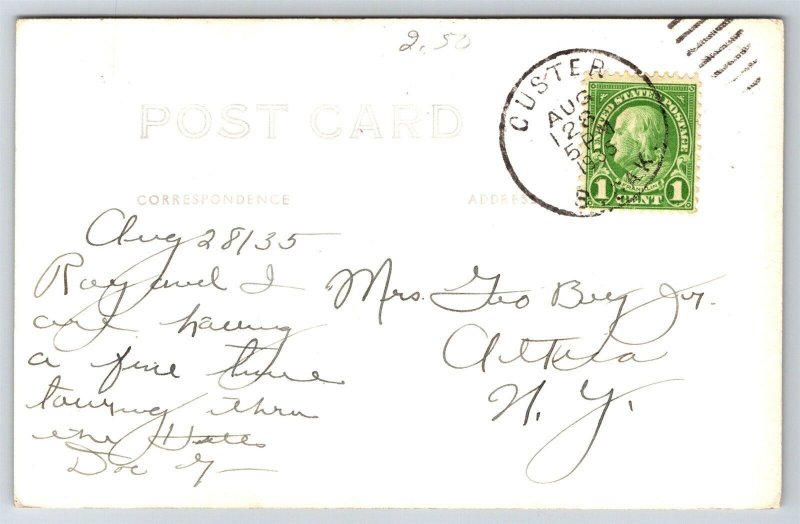 2.50
CUSTER
AUG
28
S. DAK.
UNITED STATES POSTAGE
FRANKLIN
1 CENT 1
POST CARD
CORRESPONDENCE
ADDRESS
Aug 28/35
Ray and I
are having
a fine time
touring thru
the States
Doc
Mrs. Geo Bey Jr.
N. Y.